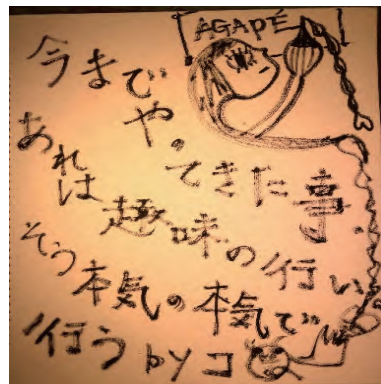 AGAPÉ
今まで
や。てきた事。
あれは趣味の行い。
そう本気の本気で
行う by コ